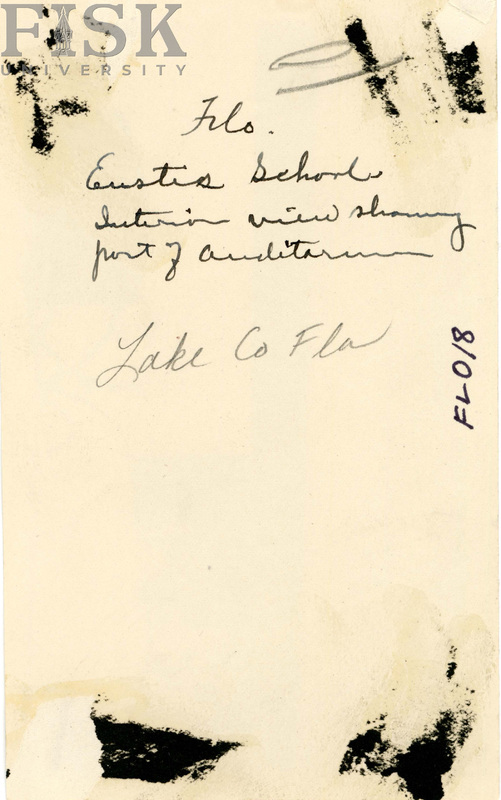 FISK
UNIVERSITY
Flo.
Eustis School
Interior view showing
part of auditorium
Lake Co Fla
FLO18